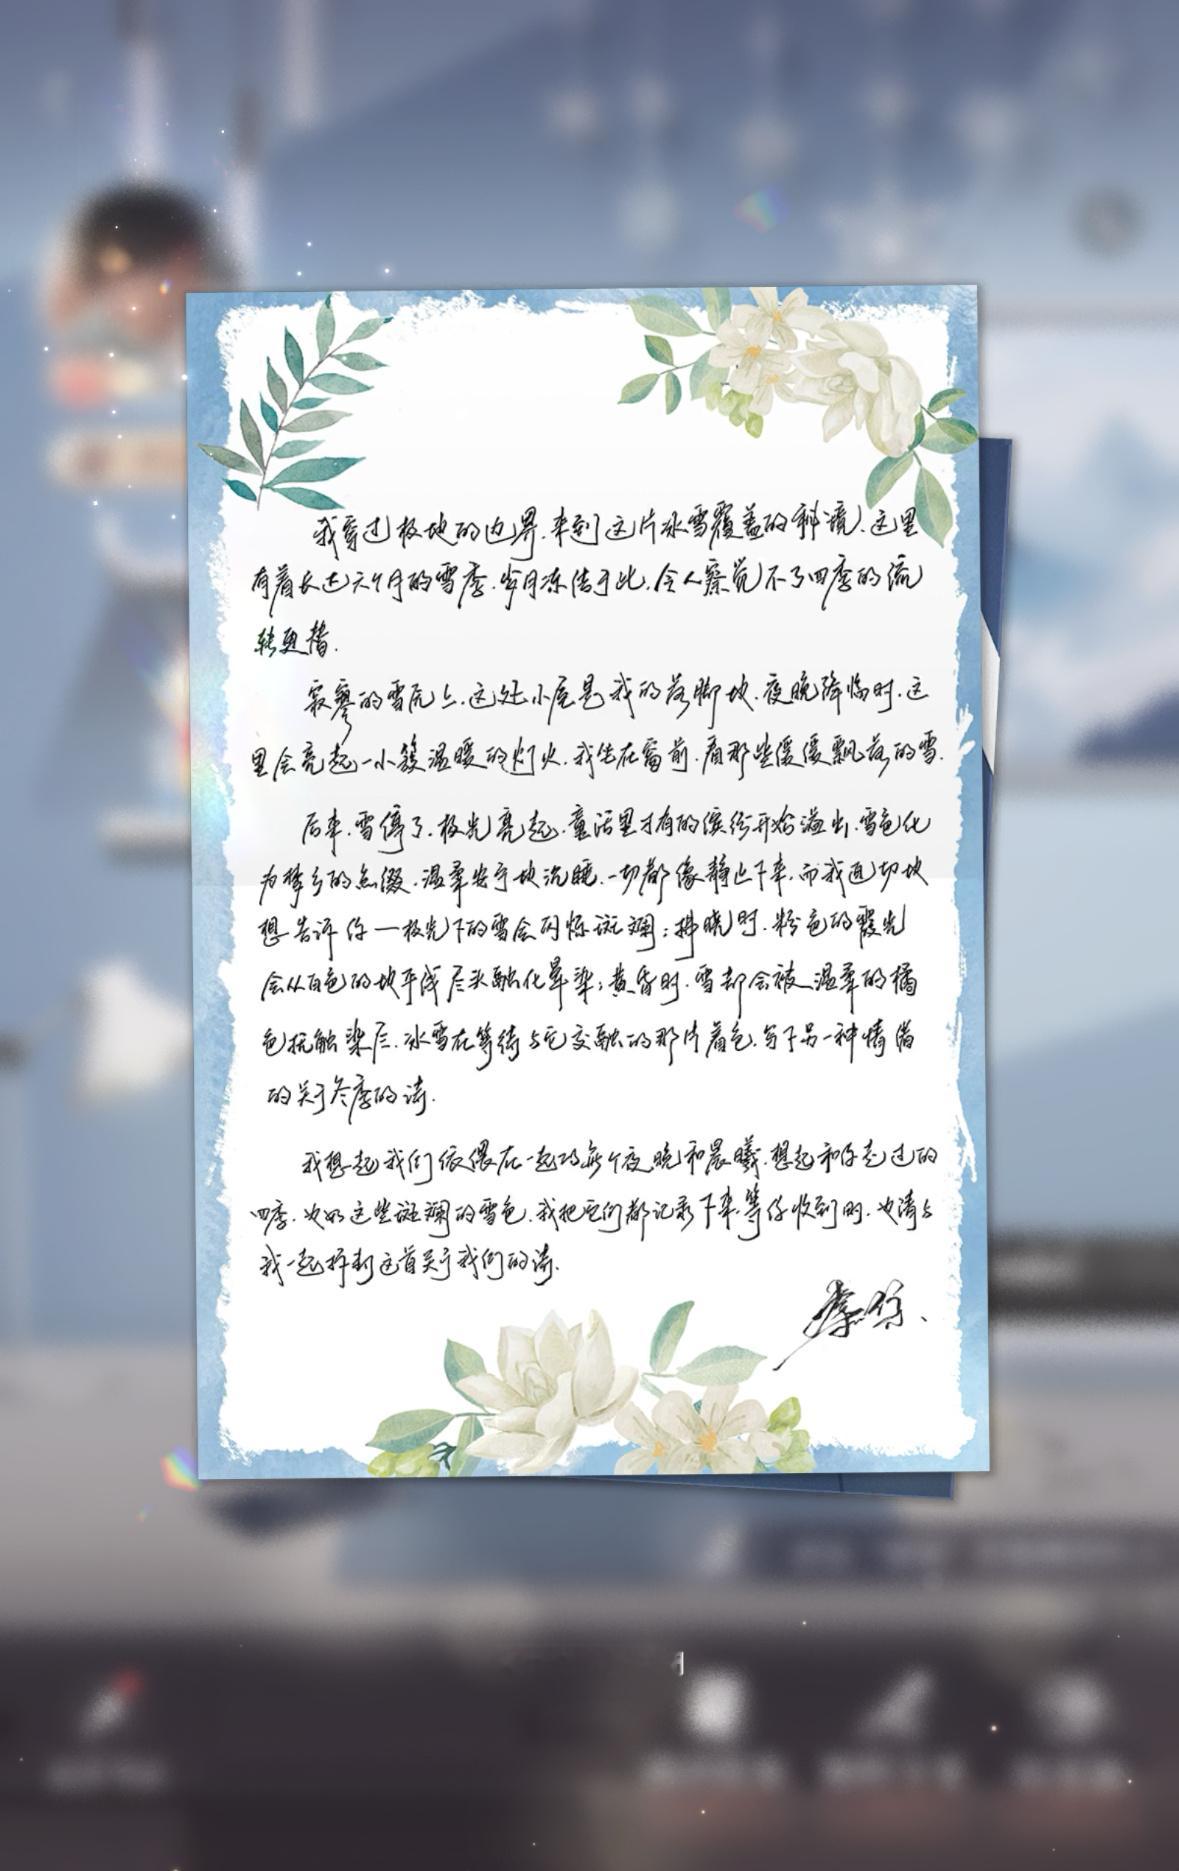 我穿过极地的边界，来到这片冰雪覆盖的秘境，这里
有着长达六个月的雪季，岁月冻结于此，令人察觉不了四季的流
转更替。
寂寥的雪原上，这处小屋是我的落脚地，夜晚降临时，这
里会亮起一小簇温暖的灯火，我坐在窗前，看那些缓缓飘落的雪。
后来，雪停了，极光亮起，童话里才有的缤纷开始溢出，雪色化
为梦乡的点缀，温柔安宁地沉睡，一切都像静止下来，而我迫切地
想告诉你——极光下的雪会闪烁斑斓；拂晓时，粉色的霞光
会从白色的地平线尽头融化晕染；黄昏时，雪却会被温柔的橘
色抚触染尽，冰雪在等待与它交融的那片着色，写下另一种情愫
的关于冬季的诗。
我想起我们依偎在一起的每个夜晚和晨曦，想起和你走过的
四季，也如这些斑斓的雪色，我把它们都记录下来，等你收到时，也请与
我一起拆封这首关于我们的诗。